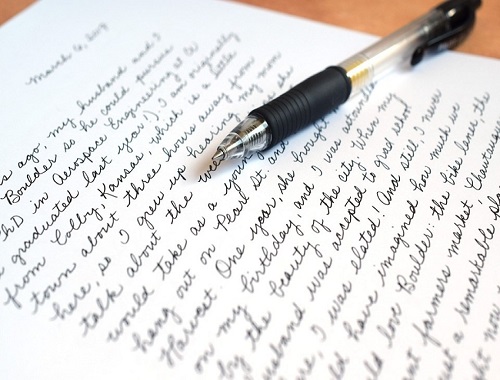 March 6,
ago, my husband and I
Boulder so he could pursue
PhD in Aerospace Engineering at CU
graduated last year). I am originally
from Colby, Kansas, which is a little
town about three hours away from
here, so I grew up hearing my mom
talk about the
would take as a young
hang out on Pearl St. and
Harvest. One year, she brought
on my birthday, and I was astounded
by the beauty of the city. When my
husband was accepted to grad school
I was elated! And still I never
have imagined how much we
love Boulder: the bike lanes, the
farmers market
a remarkable